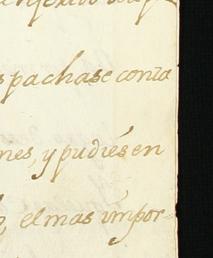 s pachase conta
nes, y pudiés en
el mas impor-